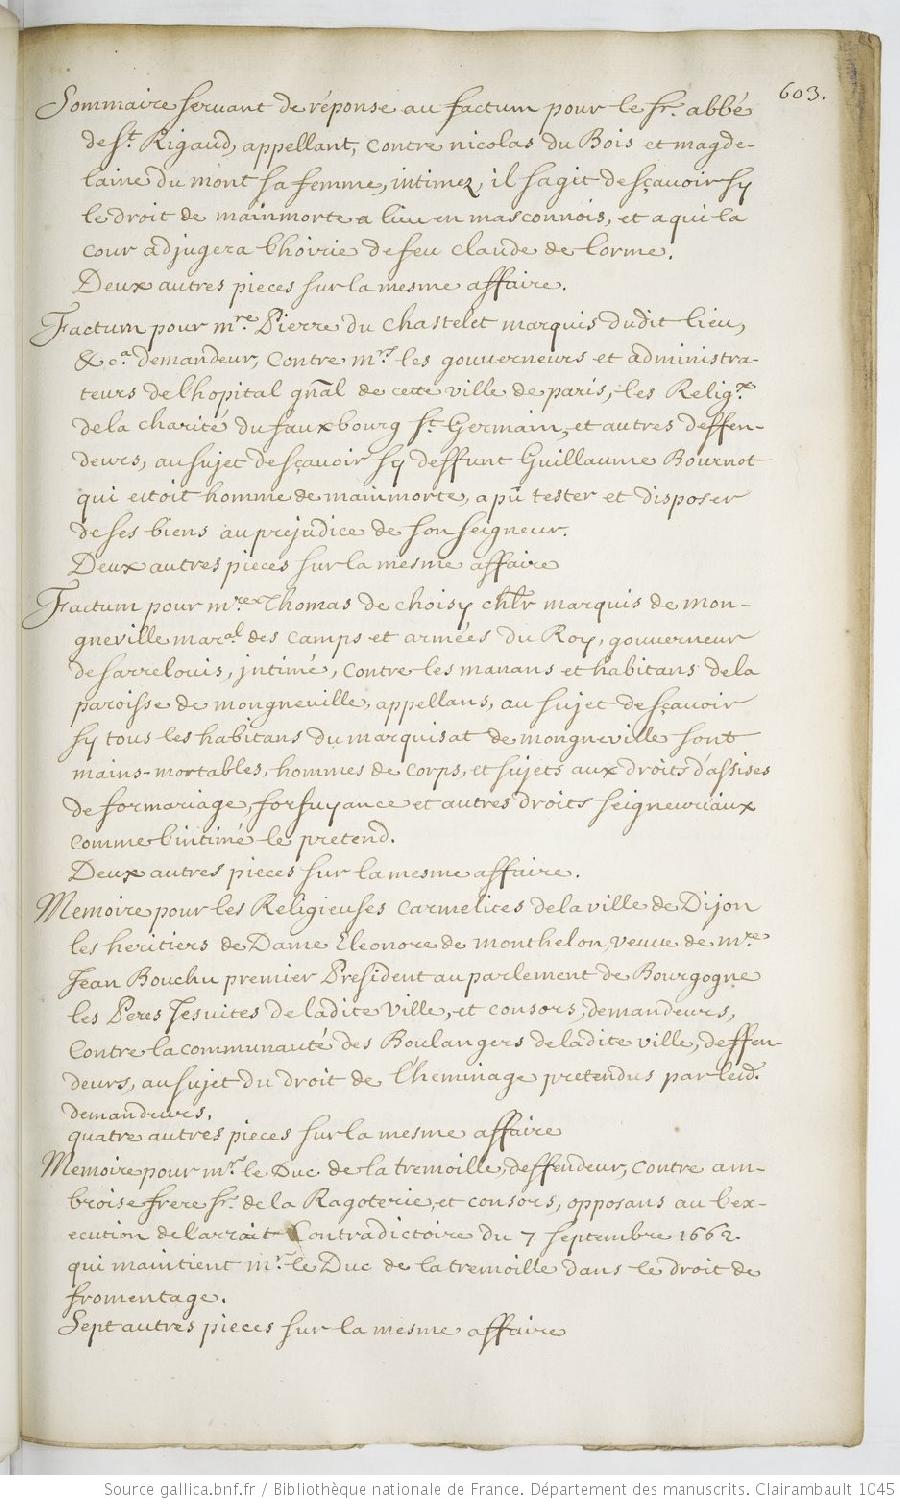 603.
Sommaire servant de réponse au factum pour le sr. abbé
de St. Rigaud, appellant, contre nicolas du Bois et magde-
laine du mont sa femme, intimez, il sagit de sçavoir sy
le droit de mainmorte a lieu en masconnois, et a qui la
cour adjugera l'hoirie de feu claude de lorme.
Deux autres pieces sur la mesme affaire.
Factum pour mre. Pierre du chastelet marquis dudit lieu,
&ca. demandeur, contre mrs. les gouverneurs et administra-
teurs de l'hopital gñal de cette ville de paris, les Religx.
de la charité du fauxbourg St. Germain, et autres deffen-
deurs, au sujet de sçavoir sy deffunt Guillaume Bournot
qui estoit homme de mainmorte, a pû tester et disposer
de ses biens au prejudice de son seigneur.
Deux autres pieces sur la mesme affaire
Factum pour mre. Thomas de choisy chlr marquis de mon-
gneville maral. des camps et armées du Roy, gouverneur
de sarrelouis, intimé, contre les manans et habitans de la
paroisse de mongneville, appellans, au sujet de sçavoir
sy tous les habitans du marquisat de mongneville sont
mains-mortables, hommes de corps, et sujets aux droits d'assises
de formariage, forfuyance et autres droits seigneuriaux
comme l'intimé le pretend.
Deux autres pieces sur la mesme affaire.
Memoire pour les Religieuses carmelites de la ville de Dijon
les heritiers de Dame Eleonore de monthelon, veuve de mre.
Jean Bouchu premier President au parlement de Bourgogne
les Peres Jesuites de ladite ville, et consors, demandeurs,
contre la communauté des Boulangers de ladite ville, deffen-
deurs, au sujet du droit de l'heminage pretendus par lesd.
demandeurs.
quatre autres pieces sur la mesme affaire
Memoire pour mr. le Duc de la tremoille, deffendeur, contre am-
broise frere sr. de la Ragoterie, et consors, opposans au l'ex-
ecution de l'arrait Contradictoire du 7 septembre 1662
qui maintient mr. le Duc de la tremoille dans le droit de
fromentage.
Sept autres pieces sur la mesme affaire
Source gallica.bnf.fr / Bibliothèque nationale de France. Département des manuscrits. Clairambault 1045